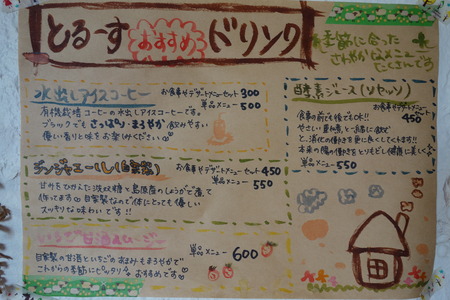 とるーす おすすめ ドリンク
季節に合った
さわやかなメニュー
たくさんです
水出しアイスコーヒー
お食事やデザートメニューセット 300
単品メニュー 500
有機栽培コーヒーの水出しアイスコーヒーです。
ブラックでもさっぱり・まろやか 飲みやすい
優しい香りと味をお楽しみください
ジンジャエール(自家製)
お食事やデザートメニューセット 450
単品メニュー 550
甘みをひかえた洗双糖と島原産のしょうがで煮て
作ってます 自家製なので体にとっても優しい
スッキリな味わいです!!
いちご甘酒スムージー
単品メニュー 600
自家製の甘酒といちごのあまみもまろやかで
これからの季節にピッタリ おすすめです
酵素ジュース(ソセッソ)
お食事やデザートメニューセット
450
食事の前でも後でもOK!!
やさしい 夏梅を と一緒に飲むと
と、消化の働きを更に良くしてくれます!!
本来の腸の働きをとりもどし健康に美しく
単品メニュー 550